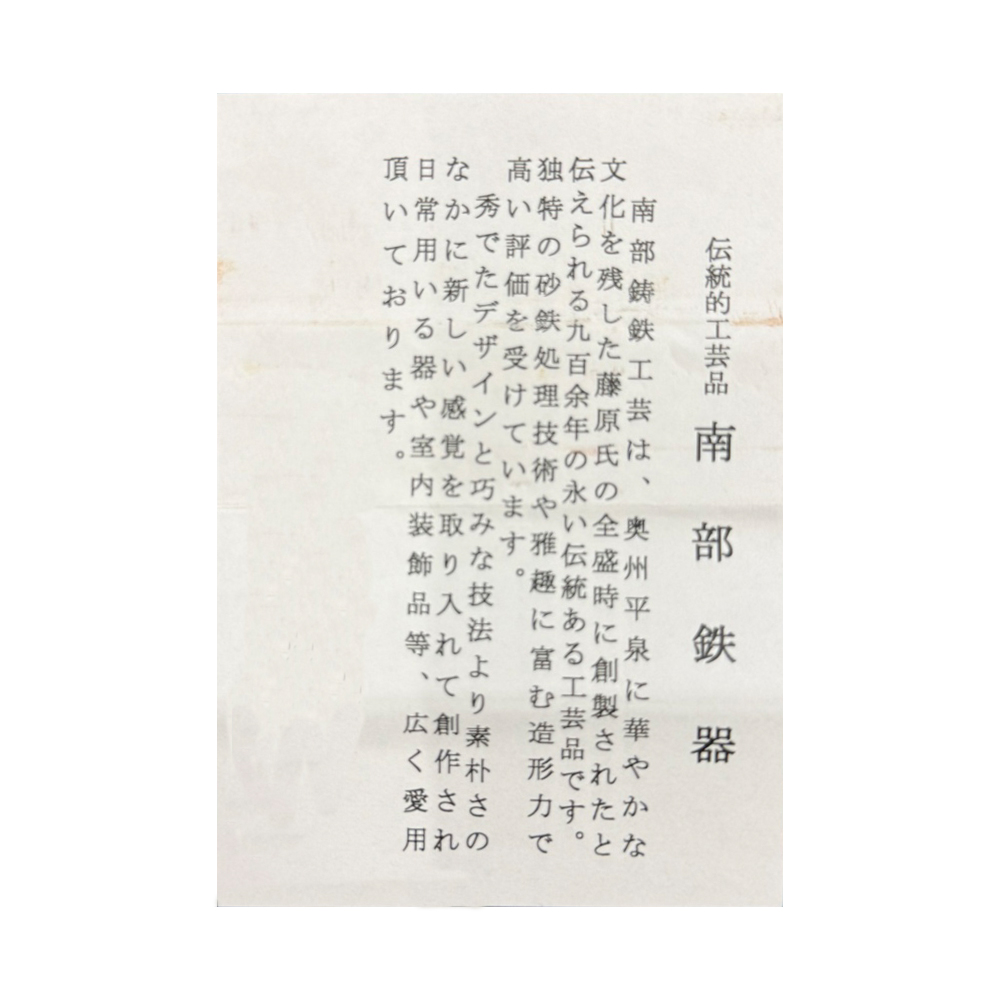 伝統的工芸品 南部鉄器
南部鋳鉄工芸は、奥州平泉に華やかな
文化を残した藤原氏の全盛時に創製されたと
伝えられる九百余年の永い伝統ある工芸品です。
独特の砂鉄処理技術や雅趣に富む造形力で
高い評価を受けています。
秀でたデザインと巧みな技法より素朴さの
なかに新しい感覚を取り入れて創作され
日常用いる器や室内装飾品等、広く愛用
頂いております。